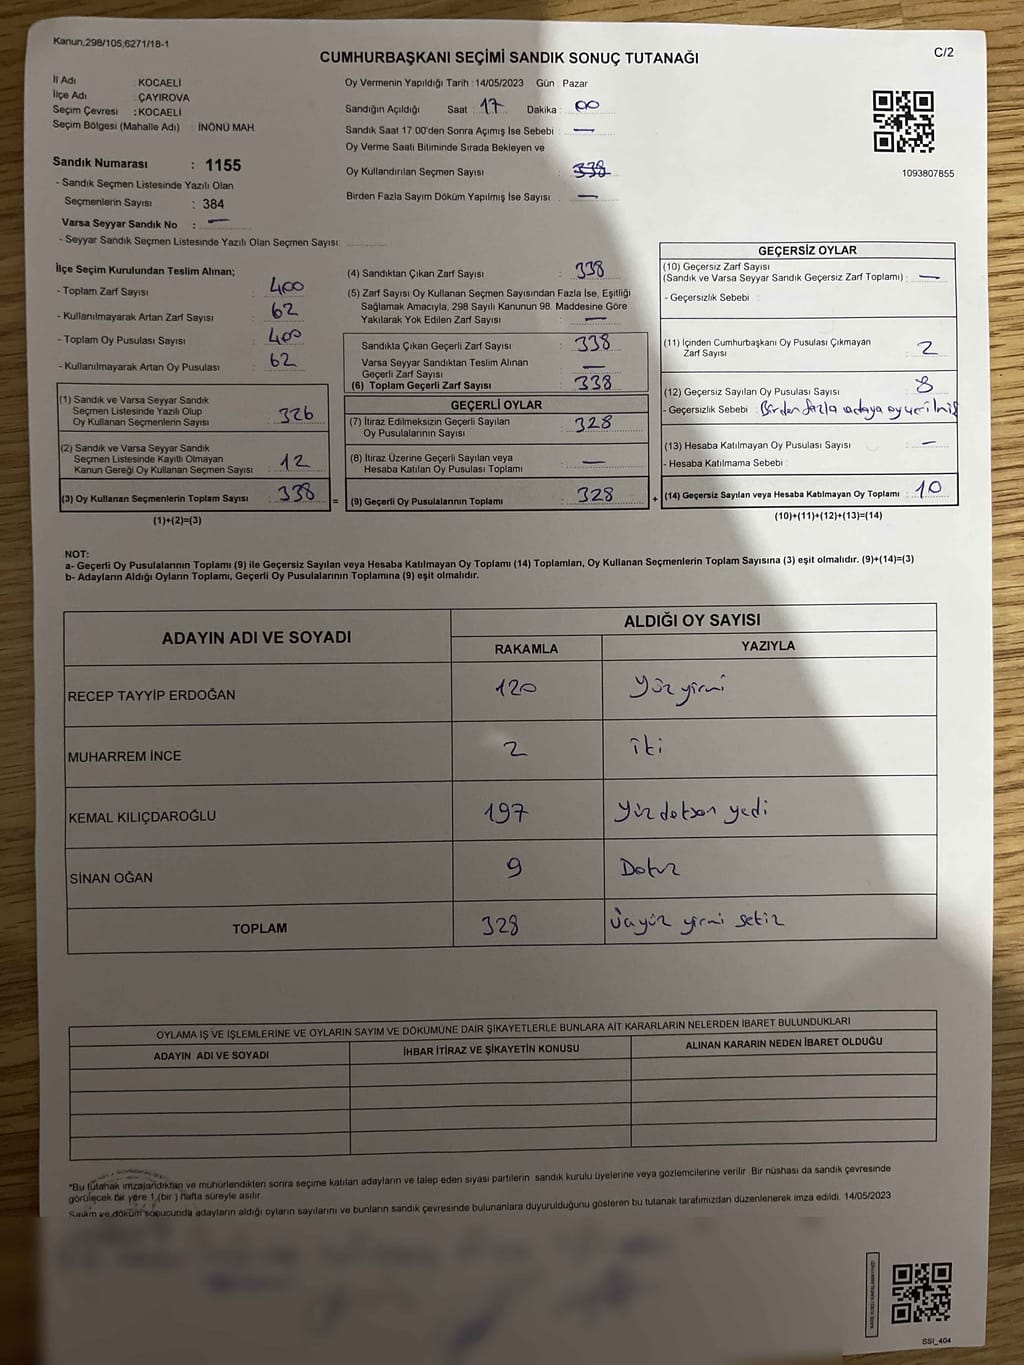 Kanun;298/105;6271/18-1
CUMHURBAŞKANI SEÇİMİ SANDIK SONUÇ TUTANAĞI
C/2
İl Adı : KOCAELİ
İlçe Adı : ÇAYIROVA
Seçim Çevresi : KOCAELİ
Seçim Bölgesi (Mahalle Adı) : İNÖNÜ MAH.
Sandık Numarası : 1155
- Sandık Seçmen Listesinde Yazılı Olan
Seçmenlerin Sayısı : 384
Varsa Seyyar Sandık No : —
- Seyyar Sandık Seçmen Listesinde Yazılı Olan Seçmen Sayısı:
Oy Vermenin Yapıldığı Tarih : 14/05/2023 Gün : Pazar
Sandığın Açıldığı Saat : 17 Dakika : 00
Sandık Saat 17:00'den Sonra Açılmış İse Sebebi : —
Oy Verme Saati Bitiminde Sırada Bekleyen ve
Oy Kullandırılan Seçmen Sayısı : 338
Birden Fazla Sayım Döküm Yapılmış İse Sayısı : —
1093807855
İlçe Seçim Kurulundan Teslim Alınan;
- Toplam Zarf Sayısı : 400
- Kullanılmayarak Artan Zarf Sayısı : 62
- Toplam Oy Pusulası Sayısı : 400
- Kullanılmayarak Artan Oy Pusulası : 62
(1) Sandık ve Varsa Seyyar Sandık
Seçmen Listesinde Yazılı Olup
Oy Kullanan Seçmenlerin Sayısı : 326
(2) Sandık ve Varsa Seyyar Sandık
Seçmen Listesinde Kayıtlı Olmayan
Kanun Gereği Oy Kullanan Seçmen Sayısı : 12
(3) Oy Kullanan Seçmenlerin Toplam Sayısı : 338 =
(1)+(2)=(3)
(4) Sandıktan Çıkan Zarf Sayısı : 338
(5) Zarf Sayısı Oy Kullanan Seçmen Sayısından Fazla İse, Eşitliği
Sağlamak Amacıyla, 298 Sayılı Kanunun 98. Maddesine Göre
Yakılarak Yok Edilen Zarf Sayısı : —
Sandıkta Çıkan Geçerli Zarf Sayısı : 338
Varsa Seyyar Sandıktan Teslim Alınan
Geçerli Zarf Sayısı : —
(6) Toplam Geçerli Zarf Sayısı : 338
GEÇERLİ OYLAR
(7) İtiraz Edilmeksizin Geçerli Sayılan
Oy Pusulalarının Sayısı : 328
(8) İtiraz Üzerine Geçerli Sayılan veya
Hesaba Katılan Oy Pusulası Toplamı : —
(9) Geçerli Oy Pusulalarının Toplamı : 328 +
GEÇERSİZ OYLAR
(10) Geçersiz Zarf Sayısı
(Sandık ve Varsa Seyyar Sandık Geçersiz Zarf Toplamı) : —
- Geçersizlik Sebebi :
(11) İçinden Cumhurbaşkanı Oy Pusulası Çıkmayan
Zarf Sayısı : 2
(12) Geçersiz Sayılan Oy Pusulası Sayısı : 8
- Geçersizlik Sebebi : Birden fazla adaya oy verilmiş
(13) Hesaba Katılmayan Oy Pusulası Sayısı : —
- Hesaba Katılmama Sebebi :
(14) Geçersiz Sayılan veya Hesaba Katılmayan Oy Toplamı : 10
(10)+(11)+(12)+(13)=(14)
NOT:
a- Geçerli Oy Pusulalarının Toplamı (9) ile Geçersiz Sayılan veya Hesaba Katılmayan Oy Toplamı (14) Toplamları, Oy Kullanan Seçmenlerin Toplam Sayısına (3) eşit olmalıdır. (9)+(14)=(3)
b- Adayların Aldığı Oyların Toplamı, Geçerli Oy Pusulalarının Toplamına (9) eşit olmalıdır.
ADAYIN ADI VE SOYADI
ALDIĞI OY SAYISI
RAKAMLA YAZIYLA
RECEP TAYYİP ERDOĞAN 120 Yüz yirmi
MUHARREM İNCE 2 iki
KEMAL KILIÇDAROĞLU 197 Yüz doksan yedi
SİNAN OĞAN 9 Dokuz
TOPLAM 328 üçyüz yirmi sekiz
OYLAMA İŞ VE İŞLEMLERİNE VE OYLARIN SAYIM VE DÖKÜMÜNE DAİR ŞİKAYETLERLE BUNLARA AİT KARARLARIN NELERDEN İBARET BULUNDUKLARI
ADAYIN ADI VE SOYADI İHBAR İTİRAZ VE ŞİKAYETİN KONUSU ALINAN KARARIN NEDEN İBARET OLDUĞU
*Bu tutanak imzalandıktan ve mühürlendikten sonra seçime katılan adayların ve talep eden siyasi partilerin sandık kurulu üyelerine veya gözlemcilerine verilir. Bir nüshası da sandık çevresinde
görülecek bir yere 1 (bir ) hafta süreyle asılır.
Sayım ve döküm sonucunda adayların aldığı oyların sayılarını ve bunların sandık çevresinde bulunanlara duyurulduğunu gösteren bu tutanak tarafımızdan düzenlenerek imza edildi. 14/05/2023
SSI_404